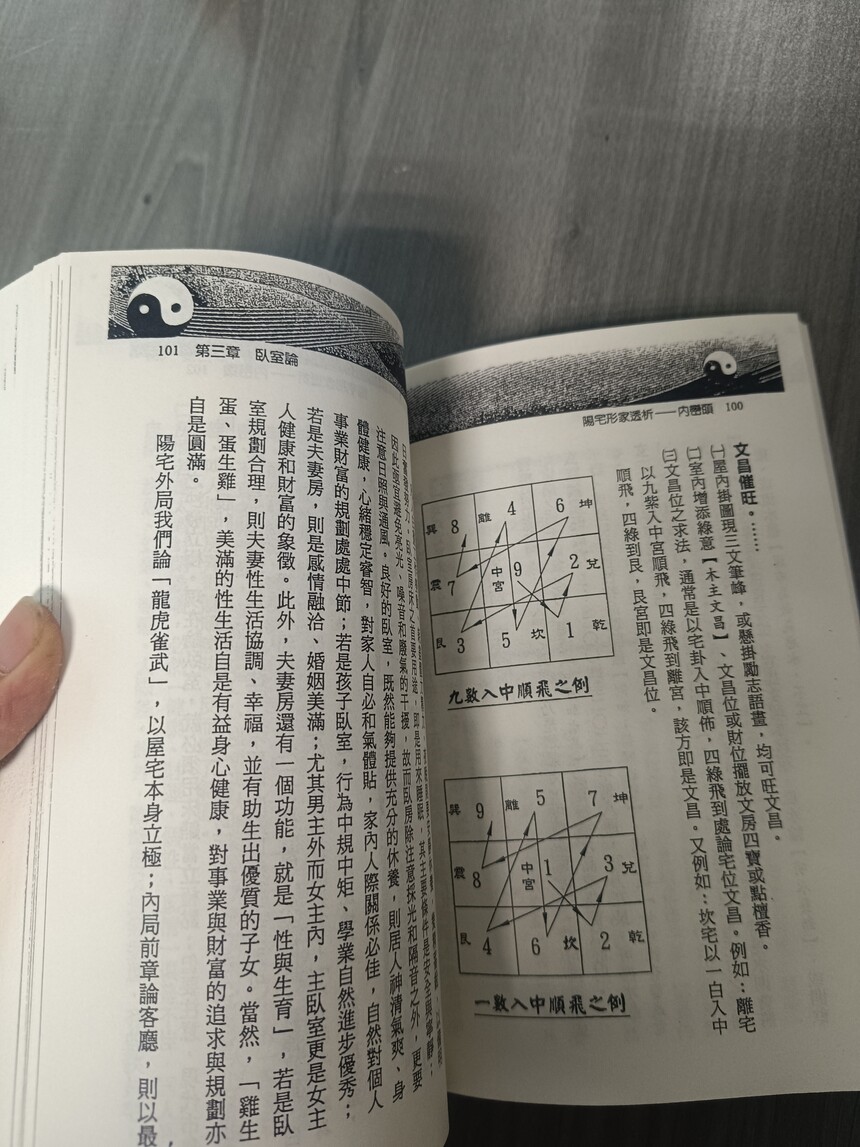 陽宅形家透析——內巒頭　100
文昌催旺。……
㈠屋內掛圖現三文筆峰，或懸掛勵志語畫，均可旺文昌。
㈡室內增添綠意【木主文昌】、文昌位或財位擺放文房四寶或點檀香。
㈢文昌位之求法，通常是以宅卦入中順佈，四綠飛到處論宅位文昌。例如：離宅
以九紫入中宮順飛，四綠飛到離宮，該方即是文昌。又例如：坎宅以一白入中
順飛，四綠到艮，艮宮即是文昌位。
巽 8 離 4 6 坤
震 7 中宮 9 2 兌
艮 3 5 坎 1 乾
九數入中順飛之例
巽 9 離 5 7 坤
震 8 中宮 1 3 兌
艮 4 6 坎 2 乾
一數入中順飛之例
101　第三章　臥室論
臥室房床之首要用途，即是用來睡眠，其主要條件是安全與寧靜；
因此強宜避免亮光、噪音和廢氣的干擾，故而臥房除注意採光和隔音之外，更要
注意日照與通風。良好的臥室，既然能夠提供充分的休養，則居人神清氣爽、身
體健康，心緒穩定睿智，對家人自必和氣體貼，家內人際關係必佳，自然對個人
事業財富的規劃處處中節；若是孩子臥室，行為中規中矩、學業自然進步優秀；
若是夫妻房，則是感情融洽、婚姻美滿；尤其男主外而女主內，主臥室更是女主
人健康和財富的象徵。此外，夫妻房還有一個功能，就是「性與生育」，若是臥
室規劃合理，則夫妻性生活協調、幸福，並有助生出優質的子女。當然，「雞生
蛋、蛋生雞」，美滿的性生活自是有益身心健康，對事業與財富的追求與規劃亦
自是圓滿。
陽宅外局我們論「龍虎雀武」，以屋宅本身立極；內局前章論客廳，則以最